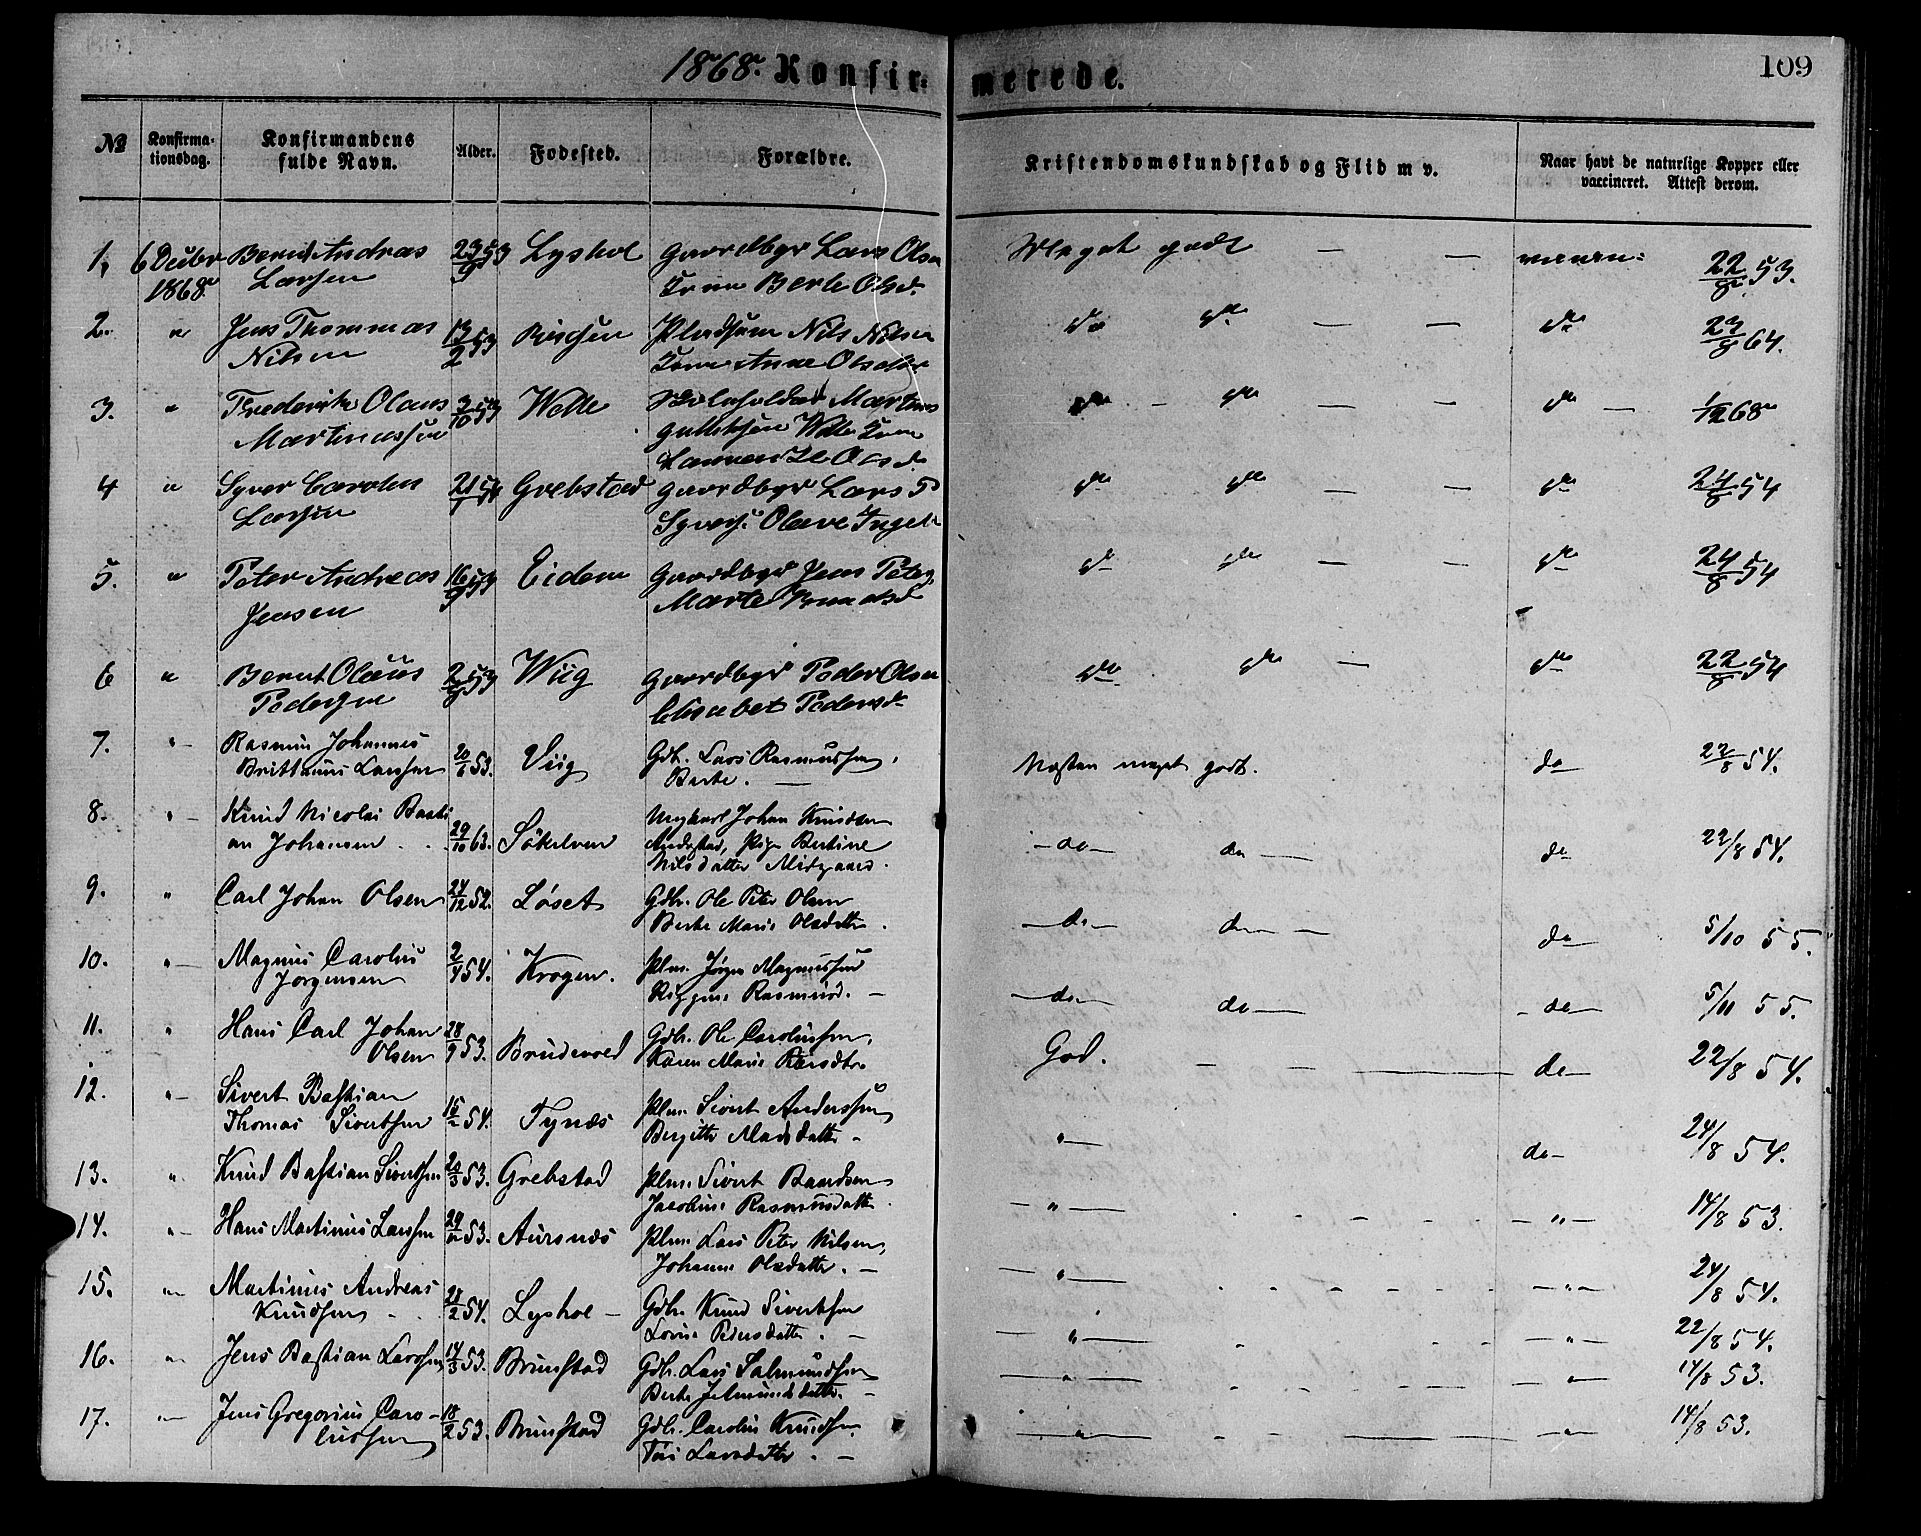 1868. Konfirmerede. 109
№ Konfirmationsdag. Konfirmandens fulde Navn. Alder. Fødested. Forældre. Kristendomskundskab og Flid m v. Naar havt de naturlige Kopper eller vaccineret. Attest derom.
1, 6 Decbr Bernt Andreas 23/9 53 Lyshol Gaardbgr Lars Olsen Meget godt — — 22/8 53.
1868. Larsen Kone Berte Olsd.
2. " Jens Thommas 13/2 53 Pladsmn Nils Nilsen do do — — do 23/8 64.
Nilsen Kone Anne Olsdtr
3. " Frederik Olaus 3/10 53 Welle Martines do — do — — do — 1/12 68
Martinussen Welle Kone
Olsd.
4 " Syver Carolus 21/1 54 Grebstad Gaardbgr Lars P do do — — do 24/8 54
Larsen Syvers. Olave Ingeb
5. " Peter Andreas 16/9 53 Eidem Gaardbgr Jens Peters do do — do 24/8 54
Jensen Marte
6 " Bernt Olaus 2/9 53 Wiig Gaardbgr Peder Olsen do do — do 22/8 54
Pedersen Elisabet Pedersd
7. " Rasmus Johannes 20/6 53. Viig Gdb. Lars Rasmussen, Næsten meget godt. do 22/8 54.
Larssen Berte. —
8. " Knud Nicolai Basti Ungkarl Johan Knudsen
an Johansen . . 29/10 63. Søkelven Pige Bertine — do — do — do 22/8 54.
Nilsdatter Midgaard.
9. " Carl Johan Olsen 24/12 52. Løset Gdb. Ole Peter Olsen — do — do — — do 5/10 55.
Berte Marie Olsdatter.
10. " Magnus Carolus 2/4 54. Krogen. Plm. Jørgen Magnussen — do — do — — do — 5/10 55.
Jørgensen Rasmusd. —
11. " Hans Carl Johan 28/9 53. Brudevold Gdb. Ole Carolussen, God. — — — do — 22/8 54.
Olsen Karen Marie
12. " Sivert Bastian Plm. Sivert Anderssen
Thomas Sivertsen 15/2 54. Tynæs Birgitte Madsdatter — " — do — 24/8 54.
13. " Knud Bastian Sivertsen 20/3 53. Grebstad Plm. Sivert Baardsen — " — — " — 14/8 53.
Jacobine Rasmusdatter
14. " Hans Martinius Larssen 53. Aursnæs Plm. Lars Peter Nilsen, — " — — " — 24/8 54.
Johanne Olsdatter. —
15. " Martinus Andreas 28/2 54. Lyshol — Gdb. Knud Sivertsen — " — — " — 22/8 54.
Knudsen — . Lovise Pedersdatter. —
16. " Jens Bastian Larssen 14/3 53. Brunstad Gdb. Lars Salmundsen — " — — " — 14/8 53.
Berte Jetmundsdatter. —
17. " Jens Gregorius Caro- 18/2 53. Brunstad Gdb. Carolus Knudsen — " — — " — 14/8 53.
lussen Larsdatter. —